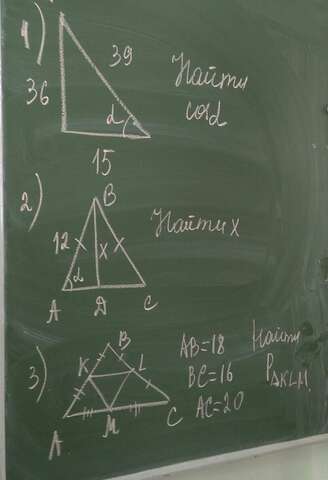 1)
39
36
Найти
cosα
α
15
2)
B
12
x
Найти x
α
A D C
3)
B
K L
AB=18 Найти
BC=16 P△KLM.
AC=20
A M C